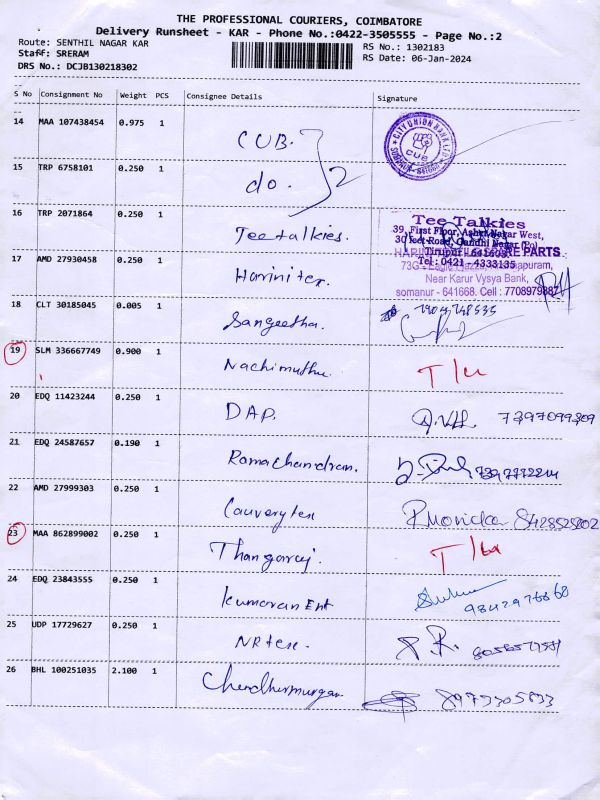 THE PROFESSIONAL COURIERS, COIMBATORE
Delivery Runsheet - KAR - Phone No.:0422-3505555 - Page No.:2
Route: SENTHIL NAGAR KAR
RS No.: 1302183
Staff: SRERAM
RS Date: 06-Jan-2024
DRS No.: DCJB130218302
S No Consignment No Weight PCS Consignee Details Signature
14 MAA 107438454 0.975 1 CUB.
CITY UNION BANK LTD
CUB
SOMANUR - 641668
15 TRP 6758101 0.250 1 do. 2
16 TRP 2071864 0.250 1 Teetalkies.
Tee Talkies
39, First Floor, Ashar Nagar West,
30 feet Road, Gandhi Nagar (Po)
Tirupur - 641603
Tel : 0421 - 4333135
17 AMD 27930458 0.250 1 Harinitex.
SPARE PARTS
Near Karur Vysya Bank,
somanur - 641668. Cell : 7708979887
18 CLT 30185045 0.005 1 Sangeetha.
19 SLM 336667749 0.900 1 Nachimuthu
20 EDQ 11423244 0.250 1 DAP. 7397099309
21 EDQ 24587657 0.190 1 Ramachandran.
22 AMD 27999303 0.250 1 Cauverytex
23 MAA 862899002 0.250 1 Thangaraj.
24 EDQ 23843555 0.250 1 Kumaran Ent
25 UDP 17729627 0.250 1 NRtex.
26 BHL 100251035 2.100 1 8973305833